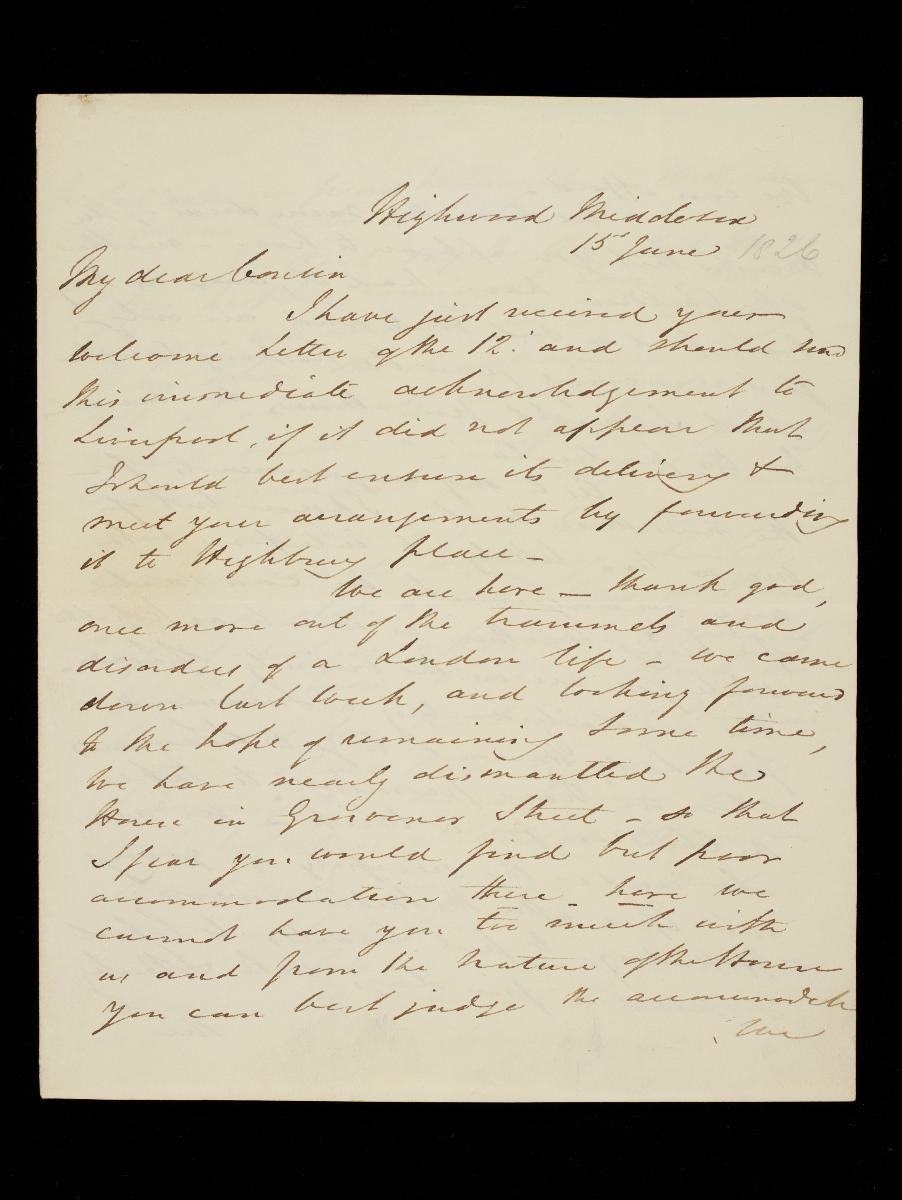 Highwood Middlesex
15th June 1826
My dear Cousin
I have just received your
welcome Letter of the 12th and should send
this immediate acknowledgement to
Liverpool, if it did not appear that
I should best ensure its delivery &
meet your arrangements by forwarding
it to Highbury place -
We are here - thank god,
once more out of the trammels and
disorders of a London life - we came
down last week, and looking forward
to the hope of remaining some time,
we have nearly dismantled the
House in Grosvenor Street - so that
I fear you would find but poor
accommodation there - here we
cannot have you too much with
us and from the nature of the House
you can best judge the accommodatn
We